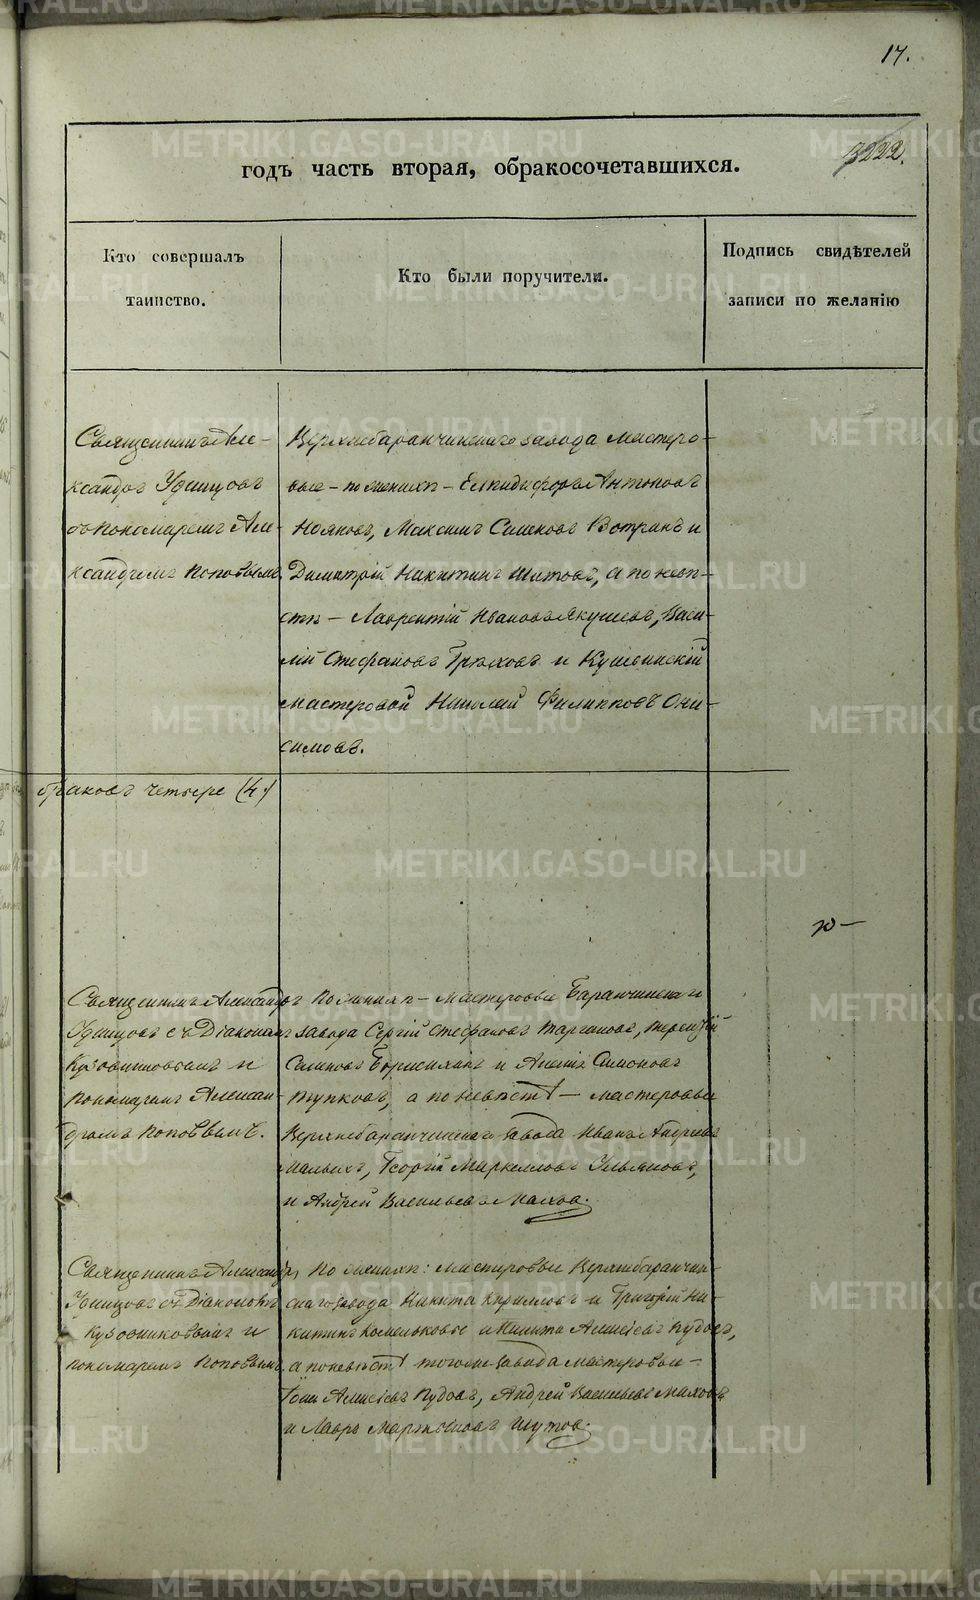 17.
3222.
годъ часть вторая, обракосочетавшихся.
Кто совершалъ
таинство.
Кто были поручители.
Подпись свидѣтелей
записи по желанію
Священникъ Але-
ксандръ Удинцовъ
съ пономаремъ Але-
ксандромъ Поповымъ.
Верхнебаранчинскаго завода мастеро-
вые - по женихѣ - Елпидифоръ Антоновъ
Максимъ Семеновъ Вотринъ и
Димитрій Никитинъ Шатовъ, а по невѣ-
стѣ - Лаврентій Ивановъ Якушевъ, Васи-
лій Стефановъ Грѣховъ и Кушвинскій
мастеровой Николай Филипповъ Они-
симовъ.
браковъ четыре (4.)
Священникъ Александръ
Удинцовъ съ Діакономъ
Кузовниковымъ и
пономаремъ Алексан-
дромъ Поповымъ.
По женихѣ - мастеровые Баранчинскаго
завода Сергій Стефановъ Терентій
Семеновъ и Алексѣй Симоновъ
Тупковъ, а по невѣстѣ - мастеровые
Верхнебаранчинскаго завода Иванъ Андреевъ
Малыхъ, Георгій Маркелловъ Ульяновъ,
и Андрей Васильевъ Махов.
Священникъ Александръ
Удинцовъ съ Діакономъ
Кузовниковымъ и
пономаремъ Поповымъ.
По женихѣ: мастеровые Верхнебаранчин-
скаго завода Никита Кирилловъ и Григорій Ни-
китинъ Комельковы и Никита Алексѣевъ Кудовъ,
а по невѣстѣ того же завода мастеровые -
Алексѣевъ Кудовъ, Андрей Васильевъ Маховъ
и Лавръ Шутов.
METRIKI.GASO-URAL.RU